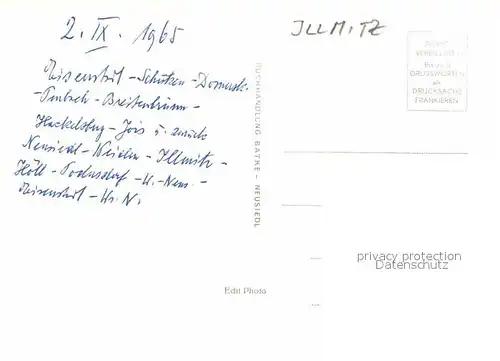 2. IX. 1965
ILLMITZ
Eisenstadt - Schützen - Donnersk.
Purbach - Breitenbrunn -
Hackelsberg - Jois u. zurück
Neusiedl - Weiden - Illmitz -
Hölle - Podersdorf -
Eisenstadt - Wr. N.
BUCHHANDLUNG BATKE - NEUSIEDL
DRUCKSACHE
FRANKIEREN
Edit Photo
privacy protection
Datenschutz